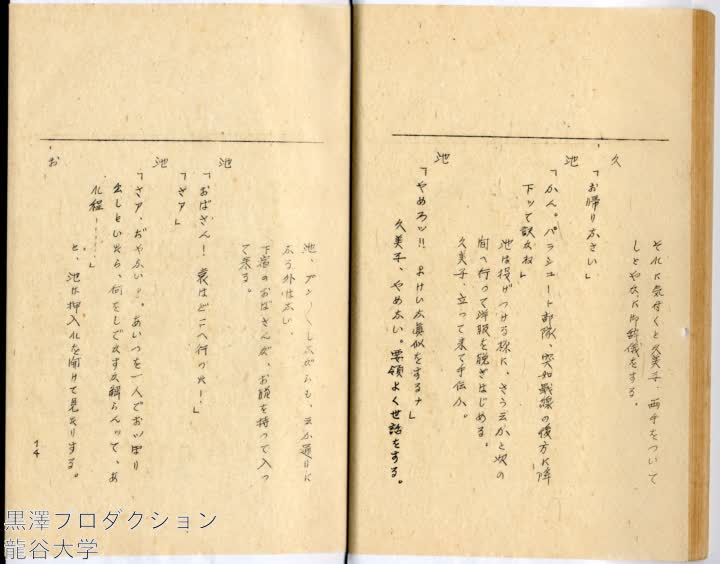 それに気付くと久美子、両手をついて
しとやかに御辞儀をする。
久
「お帰りなさい」
池
「かん。パラシュート部隊、突如戦線の後方に降
下ッて訳だね」
池は投げつける様に、さう云ふと次の
間へ行って洋服を脱ぎはじめる。
久美子、立って来て手伝ふ。
池
「やめろッ!!よけい太真似をするナ」
久美子、やめない。要領よく世話をする。
池、プン〱しながらも、云ふ通りに
なる外はない。
下宿のおばさんが、お膳を持って入っ
て来る。
池
「おばさん!表はどこへ行った!」
「さァ」
池
「さァ、ぢゃない?。あいつを一人でおッぽり
出しといたら、何をしでかすか解らんッて、あ
れ程……」
と、池は押入れを開けて見たりする。
お
14
黒澤プロダクション
龍谷大学